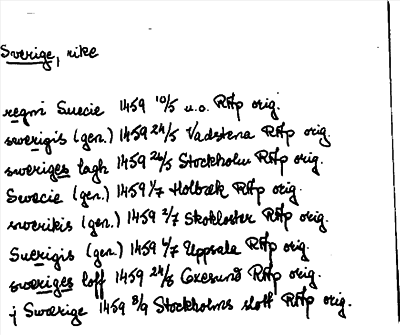 Sverige, rike
regni Suecie 1459 10/5 u.o. RAp orig.
swerigis (gen.) 1459 24/5 Vadstena RAp orig.
sweriges lagh 1459 24/5 Stockholm RAp orig.
Swecie (gen.) 1459 1/7 Holbæk RAp orig.
swerikis (gen.) 1459 2/7 Skokloster RAp orig.
Suerigis (gen.) 1459 6/7 Uppsala RAp orig.
sweriges loff 1459 24/8 RAp orig.
j Swerige 1459 8/9 Stockholms slott RAp orig.